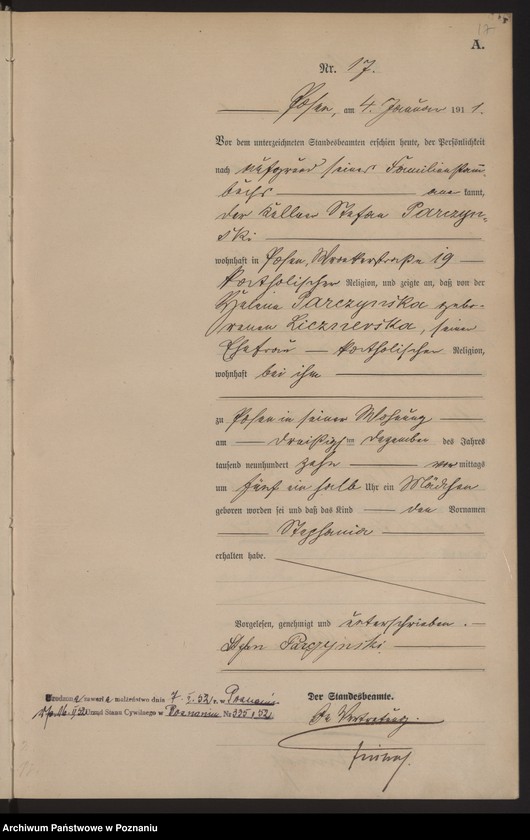 17
A.
Nr. 17.
Posen, am 4. Januar 1911.
Vor dem unterzeichneten Standesbeamten erschien heute, der Persönlichkeit
nach aufgrund seines Familienstamm-
buchs kannt,
der Kellner Stefan Parczyn-
ski
wohnhaft in Posen, Wronkerstraße 19
katholischer Religion, und zeigte an, daß von der
Helene Parczynska gebo-
renen Licznerska, seiner
Ehefrau katholischer Religion,
wohnhaft bei ihm
zu Posen in seiner Wohnung
am dreißigsten Dezember des Jahres
tausend neunhundert zehn vormittags
um fünf ein halb Uhr ein Mädchen
geboren worden sei und daß das Kind den Vornamen
Stephania
erhalten habe.
Vorgelesen, genehmigt und unterschrieben.
Stefan Parczynski
Der Standesbeamte.
In Vertretung.
Urodzona zawarła małżeństwo dnia 7. I. 52 r. w Poznaniu
Urząd Stanu Cywilnego w Poznaniu Nr 325/52
Archiwum Państwowe w Poznaniu